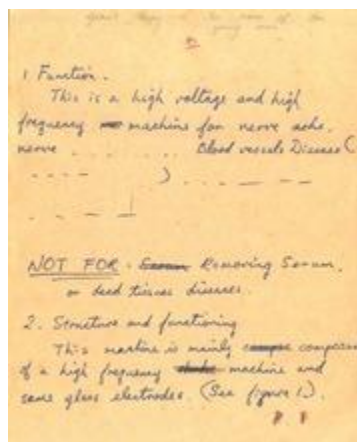 1 Function.
This is a high voltage and high
frequency machine for nerve ache,
nerve . . . . . . . . Blood vessels Disease (
- - - - ) - - - - -
- - - -
NOT FOR - Serum Removing Serum,
or dead tissues diseases.
2. Structure and functioning
This machine is mainly
of a high frequency machine and
some glass electrodes. (See figure 1).